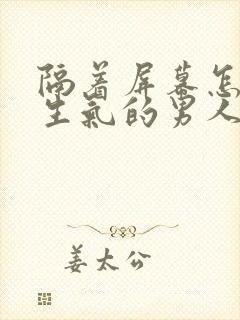 隔着屏幕怎
生气的男人
姜太公